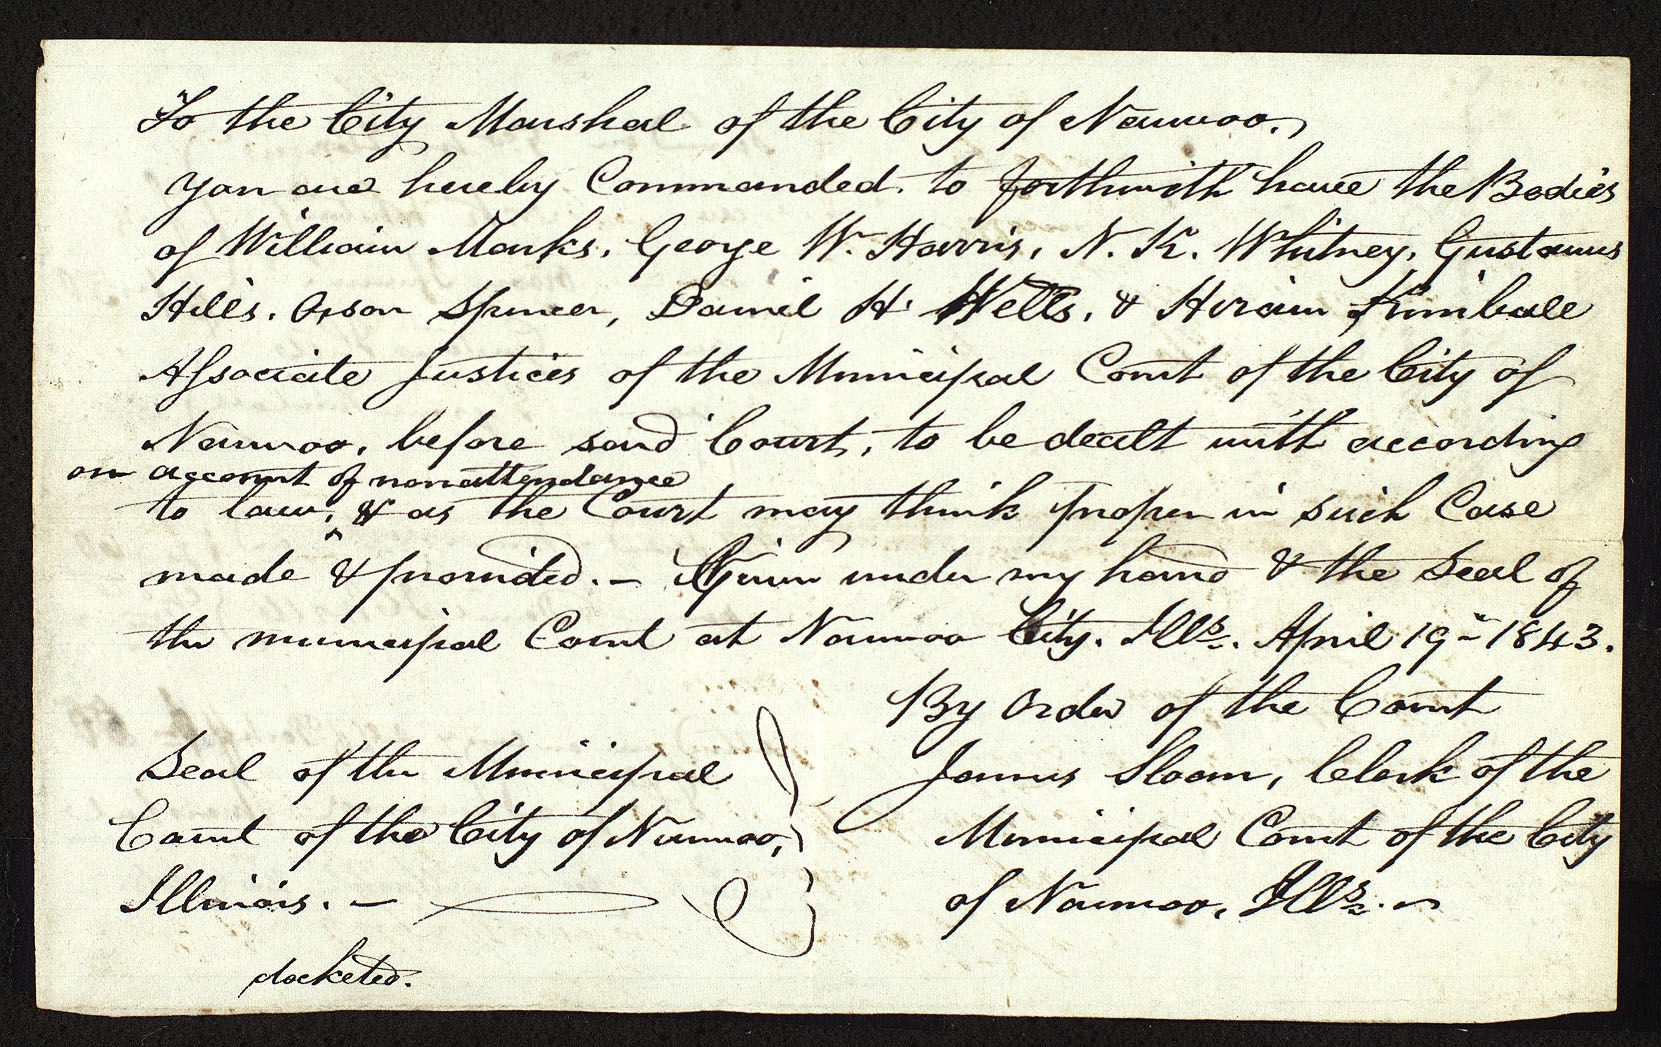 To the City Marshal of the City of Nauvoo,
You are hereby Commanded to forthwith have the Bodies
of William Marks, George W. Harris, N. K. Whitney, Gustavus
Hills, Orson Spencer, Daniel H. Wells, & Hiram Kimball
Associate Justices of the Municipal Court of the City of
Nauvoo, before said Court, to be dealt with according
on account of nonattendance
to law, ^ & as the Court may think proper in such Case
made & provided. — Given under my hand & the Seal of
the municipal Court at Nauvoo City. Ills. April 19" 1843.
By Order of the Court
Seal of the Municipal
Court of the City of Nauvoo,
Illinois. —
James Sloan, Clerk of the
Municipal Court of the City
of Nauvoo, Ills. —
docketed.